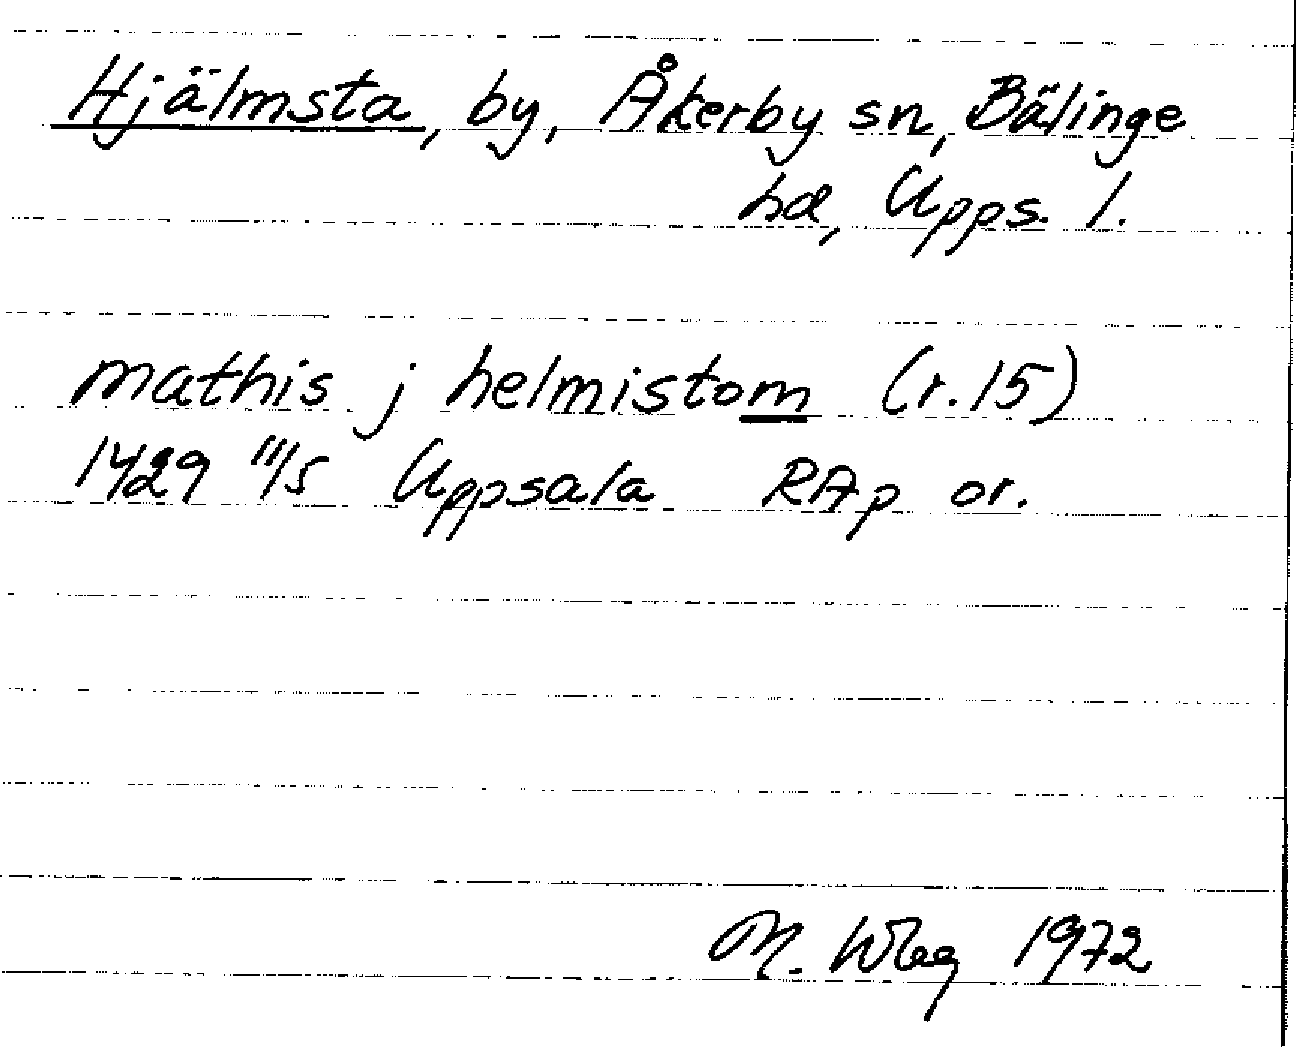 Hjälmsta, by, Åkerby sn, Bälinge
hd, Upps. l.
mathis j helmistom (r.15)
1429 11/5 Uppsala RAp or.
M. 1972